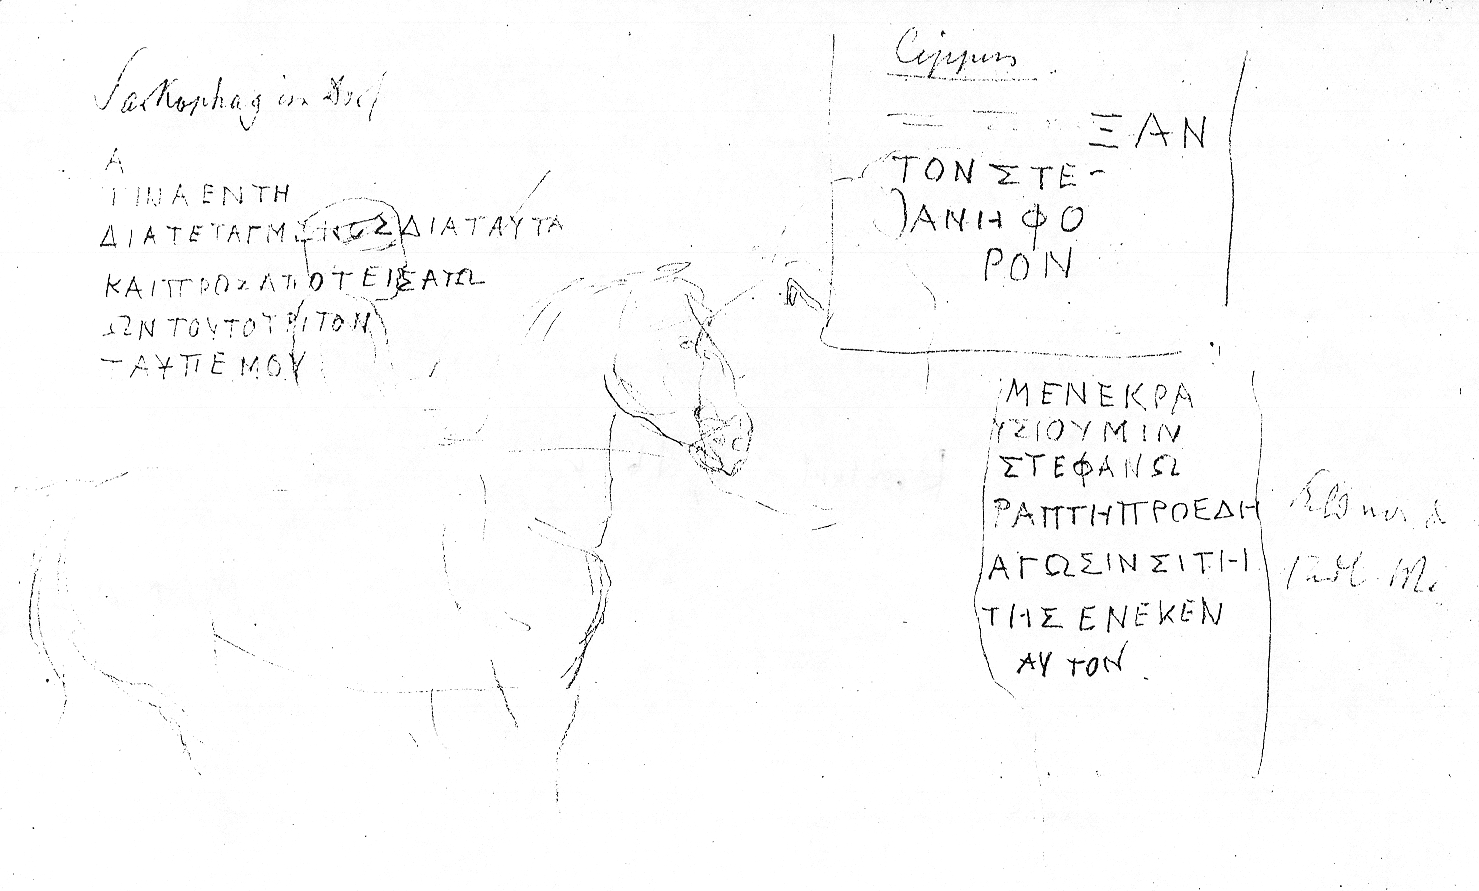 Sarkophag im Dorf
Α
ΤΙΝΑΕΝΤΗ
ΔΙΑΤΕΤΑΓΜΕΝΟΣΔΙΑΤΑΥΤΑ
ΚΑΙΠΡΟΣΑΠΟΤΕΙΣΑΤΩ
ΩΝΤΟΥΤΟΤΡΙΤΟΝ
Cippus
ΞΑΝ
ΤΟΝΣΤΕ-
ΑΝΗΦΟ
ΡΟΝ
ΜΕΝΕΚΡΑ
ΥΣΙΟΥΜΙΝ
ΣΤΕΦΑΝΩ
ΡΑΠΤΗΠΡΟΕΔΗ
ΑΓΩΣΙΝΣΙΤΗ
ΤΗΣΕΝΕΚΕΝ
ΑΥΤΟΝ